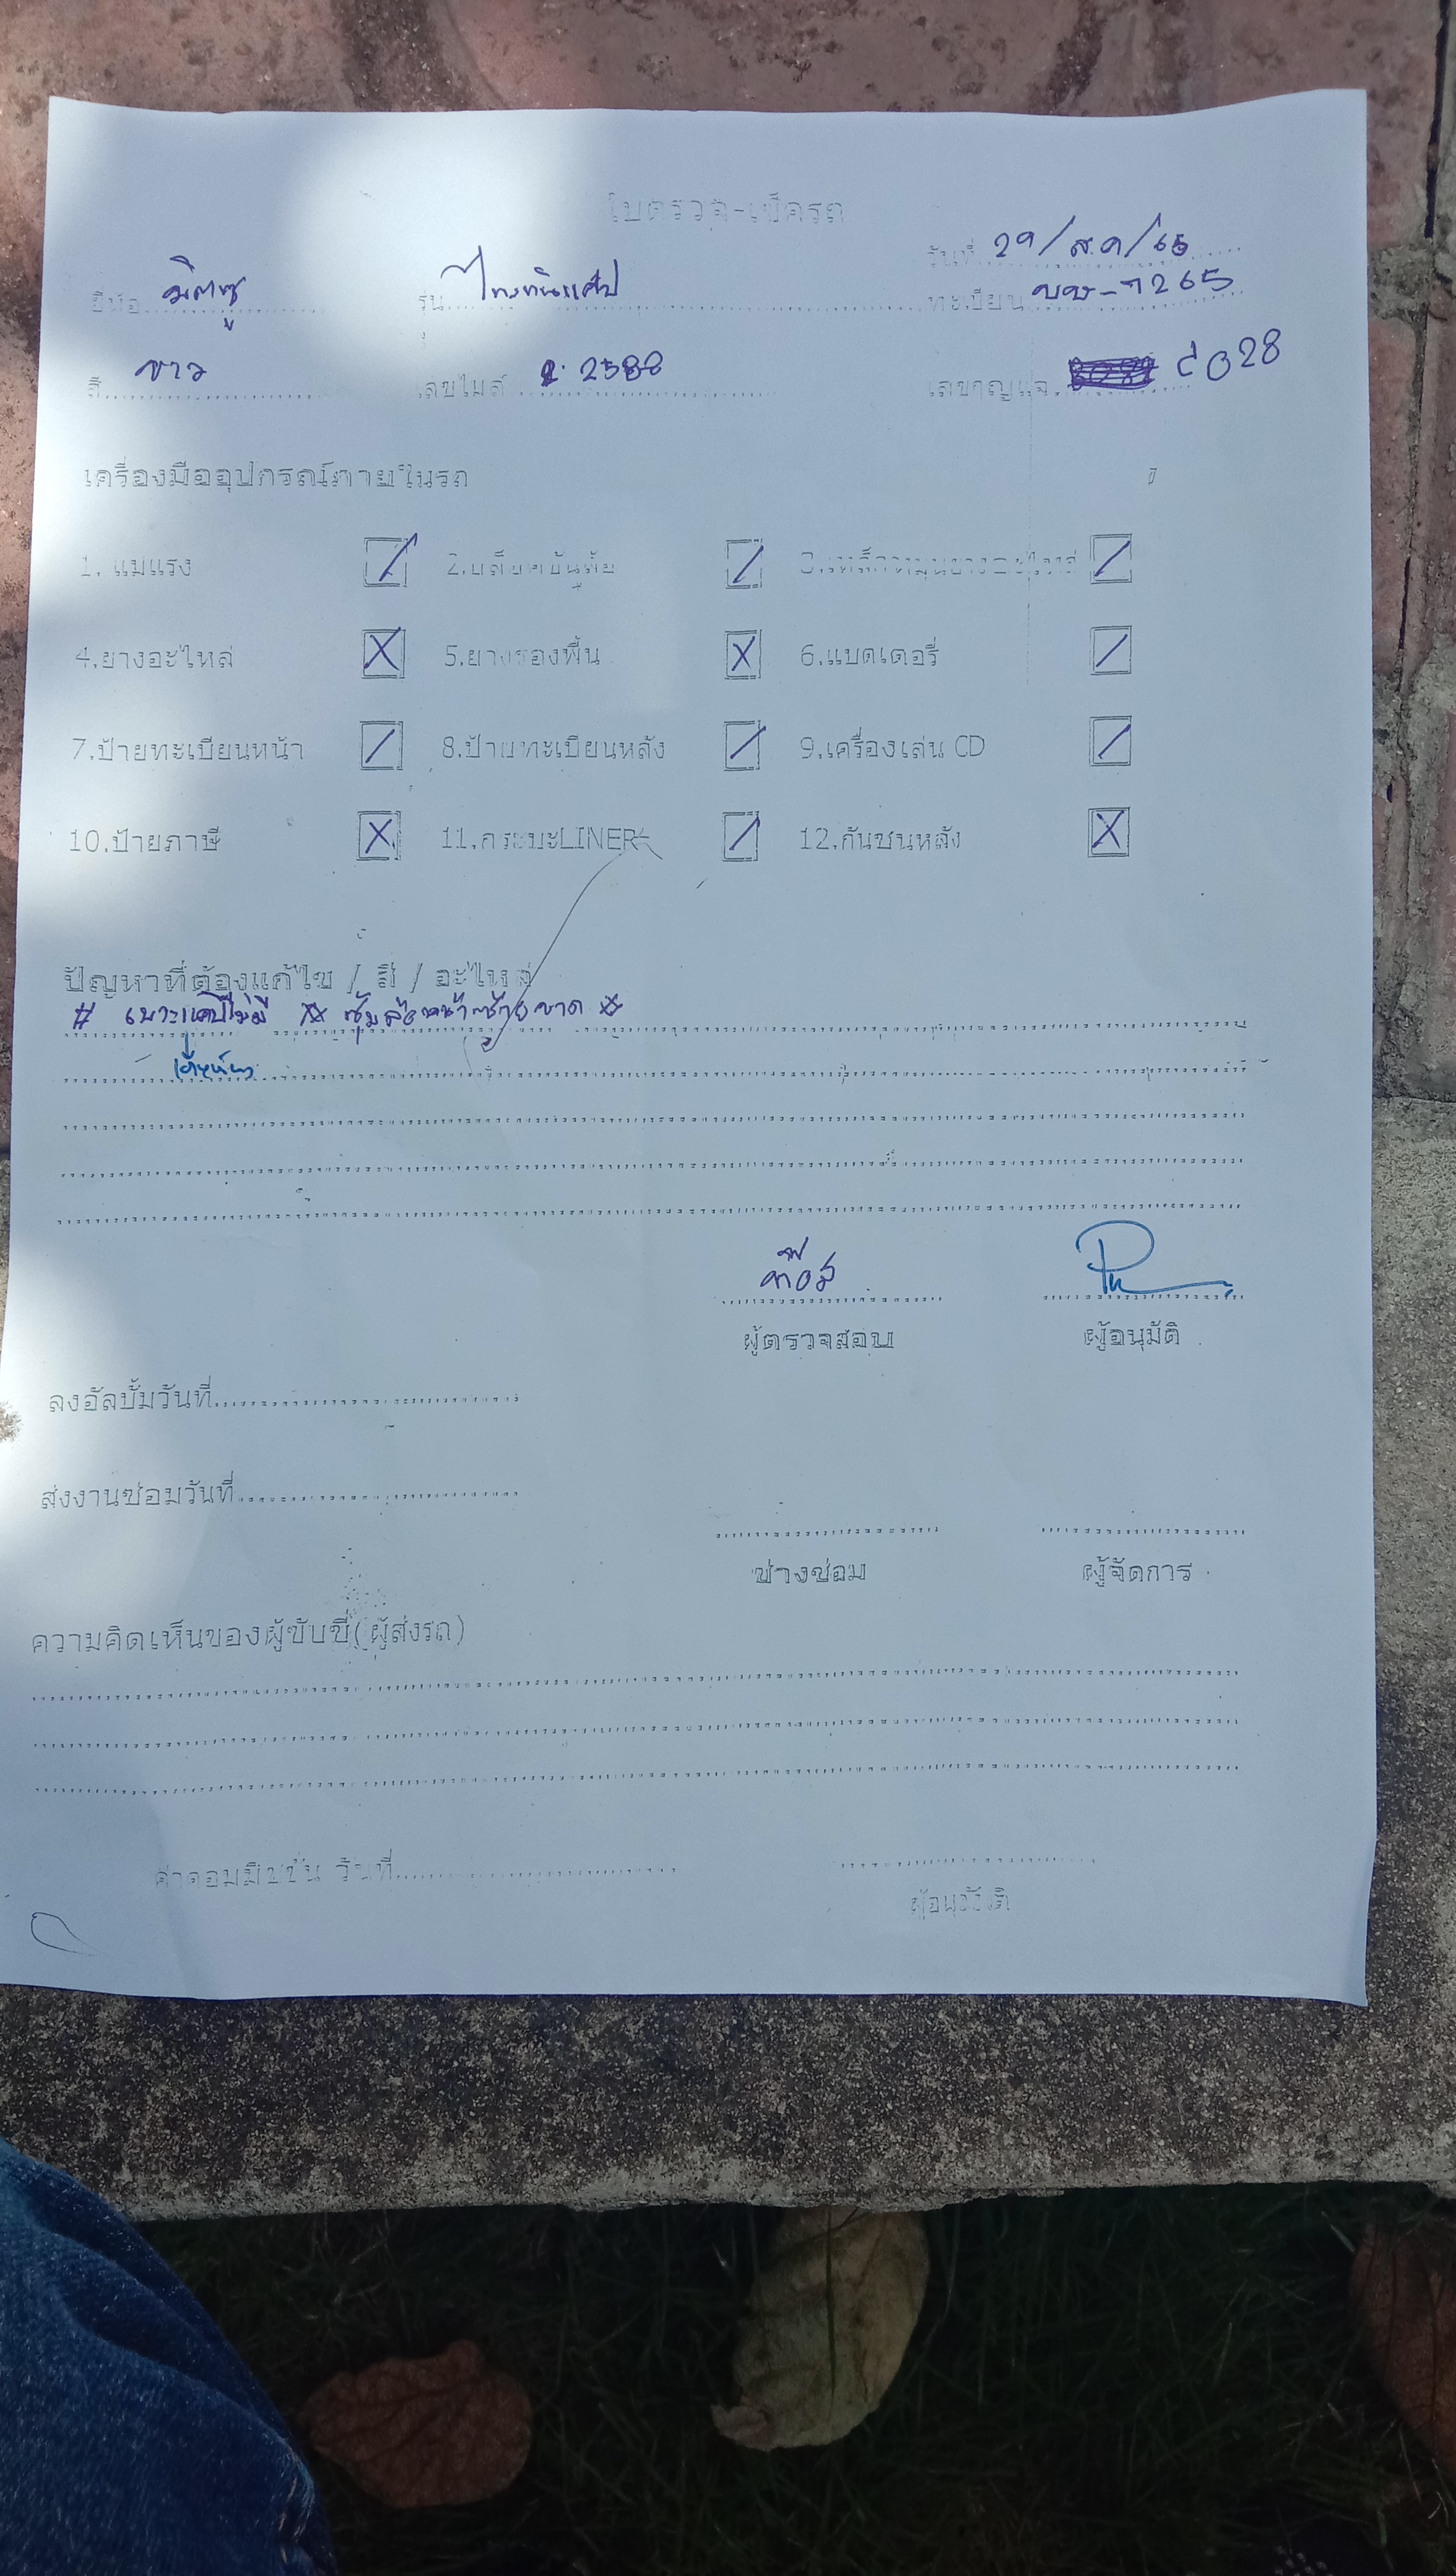 ใบตรวจ-เช็ครถ
วันที่ 29/ส.ค/65
ยี่ห้อ มิตซู รุ่น ไททันแค๊ป ทะเบียน บบ-7265
สี ขาว เลขไมล์ 2588 เลขกุญแจ 028
เครื่องมืออุปกรณ์ภายในรถ
1. แม่แรง 2.บล็อคขันล้อ 3.เหล็กหมุนยางอะไหล่
4.ยางอะไหล่ 5.ยางรองพื้น 6.แบตเตอรี่
7.ป้ายทะเบียนหน้า 8.ป้ายทะเบียนหลัง 9.เครื่องเล่น CD
10.ป้ายภาษี 11.กระบะLINER 12.กันชนหลัง
ปัญหาที่ต้องแก้ไข / สี / อะไหล่
# เบาะแค๊ปไม่มี ซุ้มล้อหน้าซ้ายขาด
ผู้ตรวจสอบ ผู้อนุมัติ
ลงอัลบั้มวันที่
ส่งงานซ่อมวันที่
ช่างซ่อม ผู้จัดการ
ความคิดเห็นของผู้ขับขี่(ผู้ส่งรถ)
ค่าคอมมิชชั่น วันที่
ผู้อนุมัติ